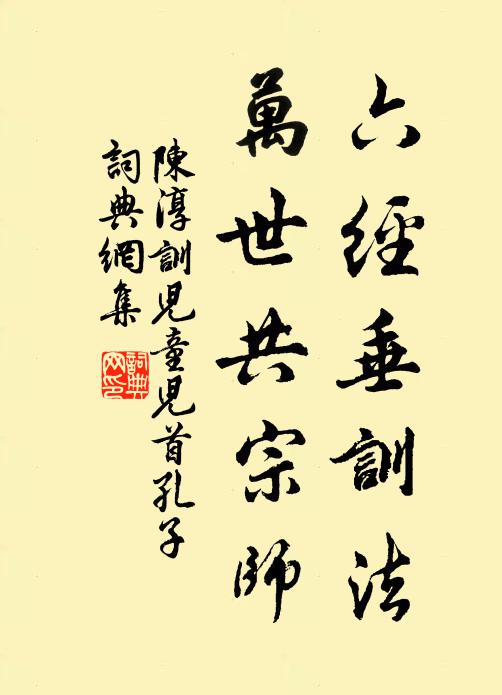 六經垂訓法
萬世共宗師
陳淳訓兒童兒首孔子
詞典網集
詞典网印